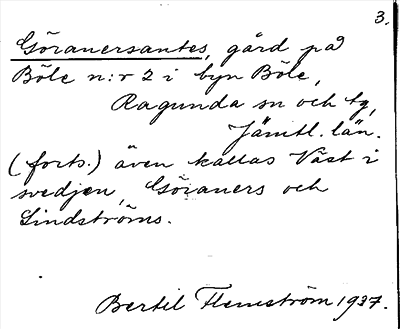 3.
Göranersantes, gård på
Böle n:r 2 i byn Böle,
Ragunda sn och tg,
Jämtl. län.
(forts.) även kallas Väst i
svedjen, Göraners och
Lindströms.
Bertil Flemström 1937.